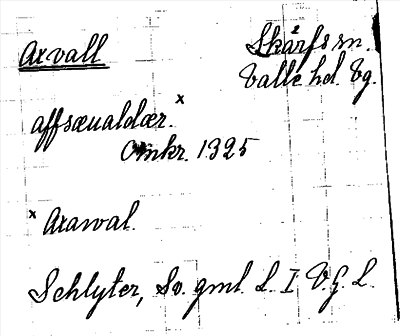 Axvall Skärfs sn.
Valle hd. Vg.
affsæualdær. x
Omkr. 1325
x Axawal.
Schlyter, Sv. gml. L. I V.G. L.